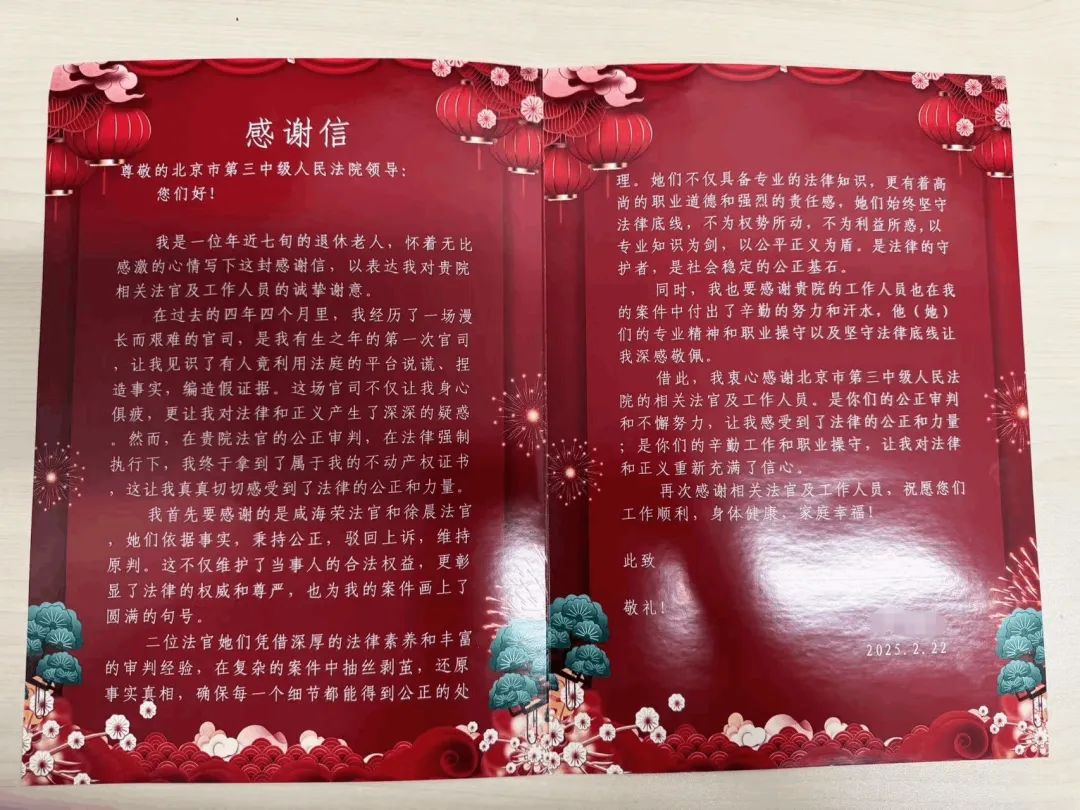 感谢信
尊敬的北京市第三中级人民法院领导：
您们好！
我是一位年近七旬的退休老人，怀着无比
感激的心情写下这封感谢信，以表达我对贵院
相关法官及工作人员的诚挚谢意。
在过去的四年四个月里，我经历了一场漫
长而艰难的官司，是我有生之年的第一次官司
，让我见识了有人竟利用法庭的平台说谎、捏
造事实，编造假证据。这场官司不仅让我身心
俱疲，更让我对法律和正义产生了深深的疑惑
。然而，在贵院法官的公正审判，在法律强制
执行下，我终于拿到了属于我的不动产权证书
，这让我真真切切感受到了法律的公正和力量。
我首先要感谢的是咸海荣法官和徐晨法官
，她们依据事实，秉持公正，驳回上诉，维持
原判。这不仅维护了当事人的合法权益，更彰
显了法律的权威和尊严，也为我的案件画上了
圆满的句号。
二位法官她们凭借深厚的法律素养和丰富
的审判经验，在复杂的案件中抽丝剥茧，还原
事实真相，确保每一个细节都能得到公正的处
理。她们不仅具备专业的法律知识，更有着高
尚的职业道德和强烈的责任感，她们始终坚守
法律底线，不为权势所动，不为利益所惑，以
专业知识为剑，以公平正义为盾。是法律的守
护者，是社会稳定的公正基石。
同时，我也要感谢贵院的工作人员也在我
的案件中付出了辛勤的努力和汗水，他（她）
们的专业精神和职业操守以及坚守法律底线让
我深感敬佩。
借此，我衷心感谢北京市第三中级人民法
院的相关法官及工作人员。是你们的公正审判
和不懈努力，让我感受到了法律的公正和力量
；是你们的辛勤工作和职业操守，让我对法律
和正义重新充满了信心。
再次感谢相关法官及工作人员，祝愿您们
工作顺利，身体健康，家庭幸福！
此致
敬礼！
2025.2.22